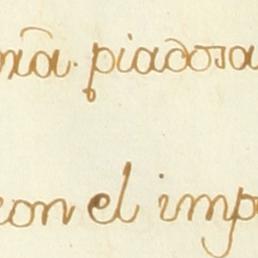 piadosa
con el imp